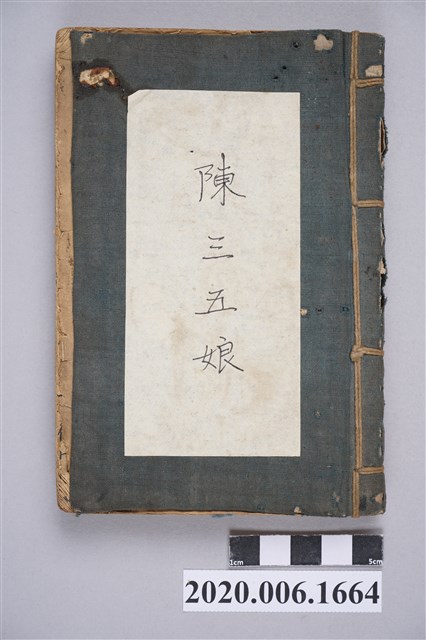 陳三五娘
1cm 5cm
2020.006.1664